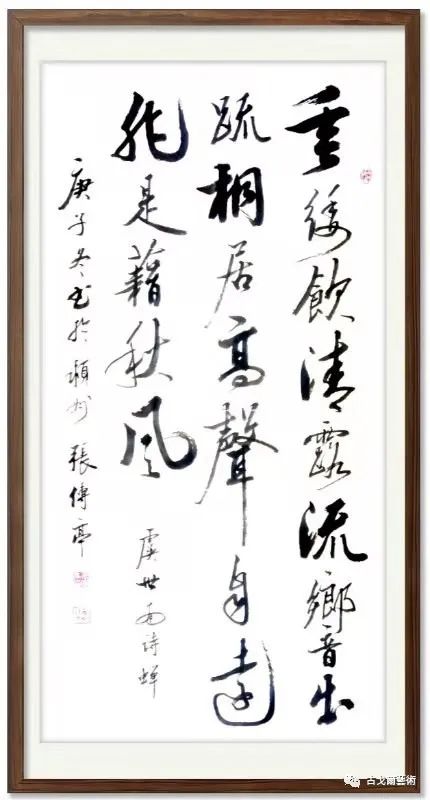 垂緌飲清露流響出
疏桐居高聲自遠
非是藉秋風
虞世南詩蟬
庚子冬书於潁州張傳亭
古戈爾藝術